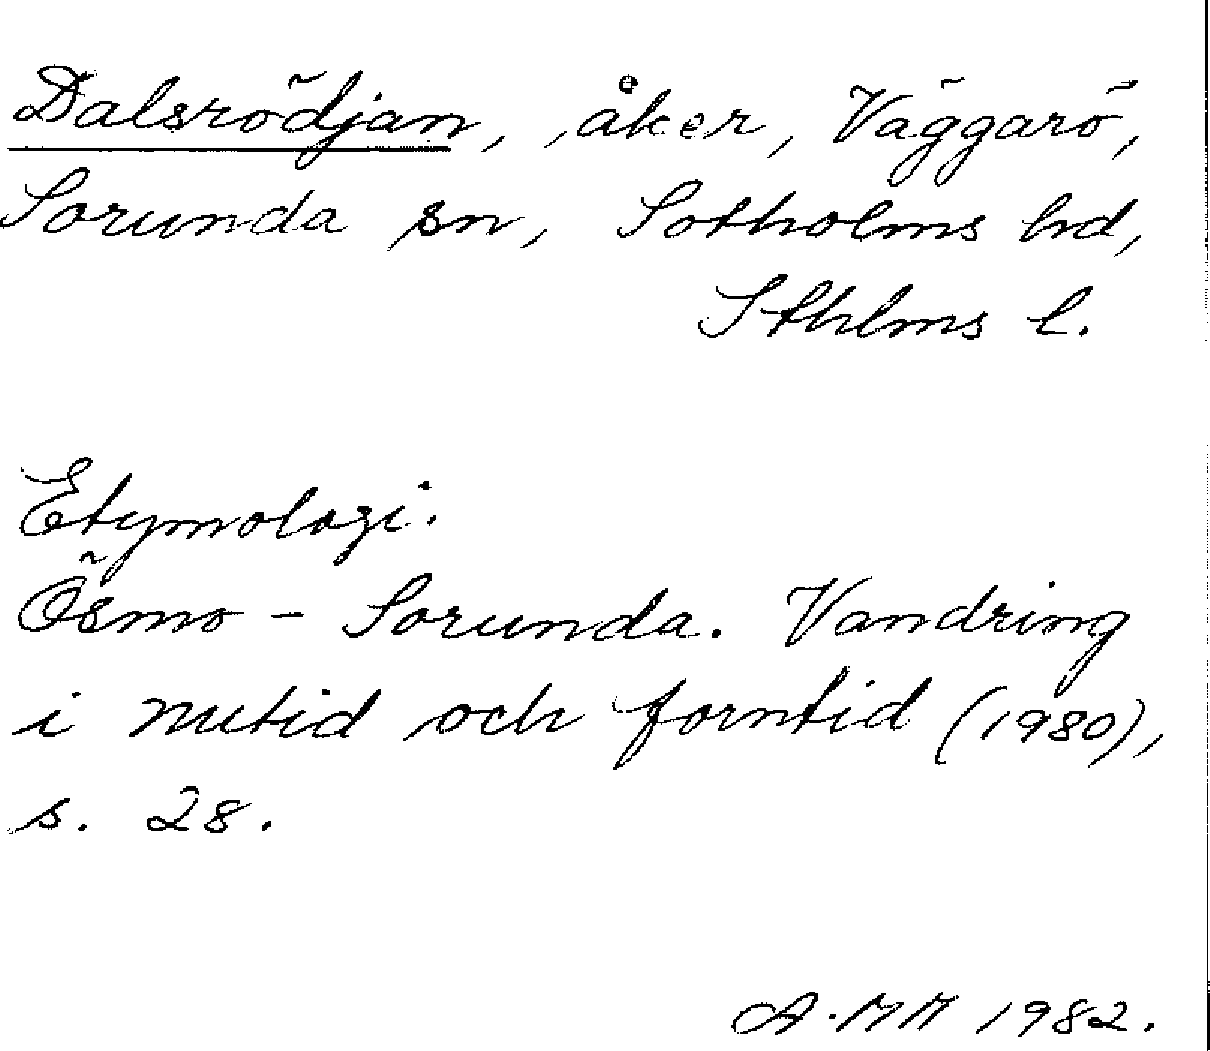 Dalsrödjan, åker, Väggarö,
Sorunda sn, Sotholms hd,
Sthlms l.
Etymologi.
Ösmo - Sorunda. Vandring
i nutid och forntid (1980),
s. 28.
A.MH 1982.